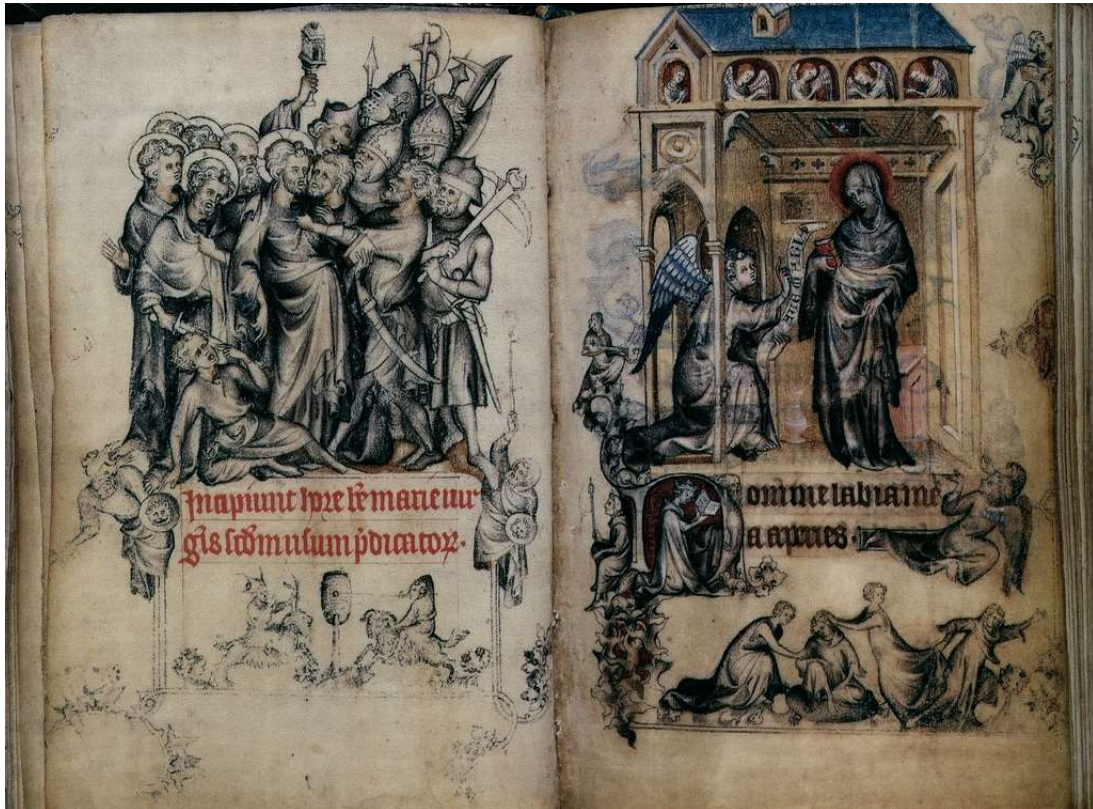 Incipiunt hore bē marie uir
gīs scdm usum p̄dicatoꝝ.
Domine labia me
a apries.